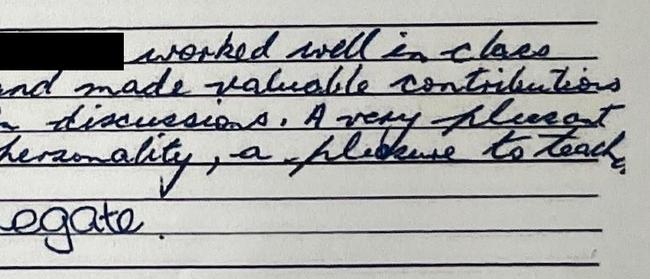 worked well in class
nd made valuable contributions
n discussions. A very pleasant
personality, a pleasure to teach.
egate.